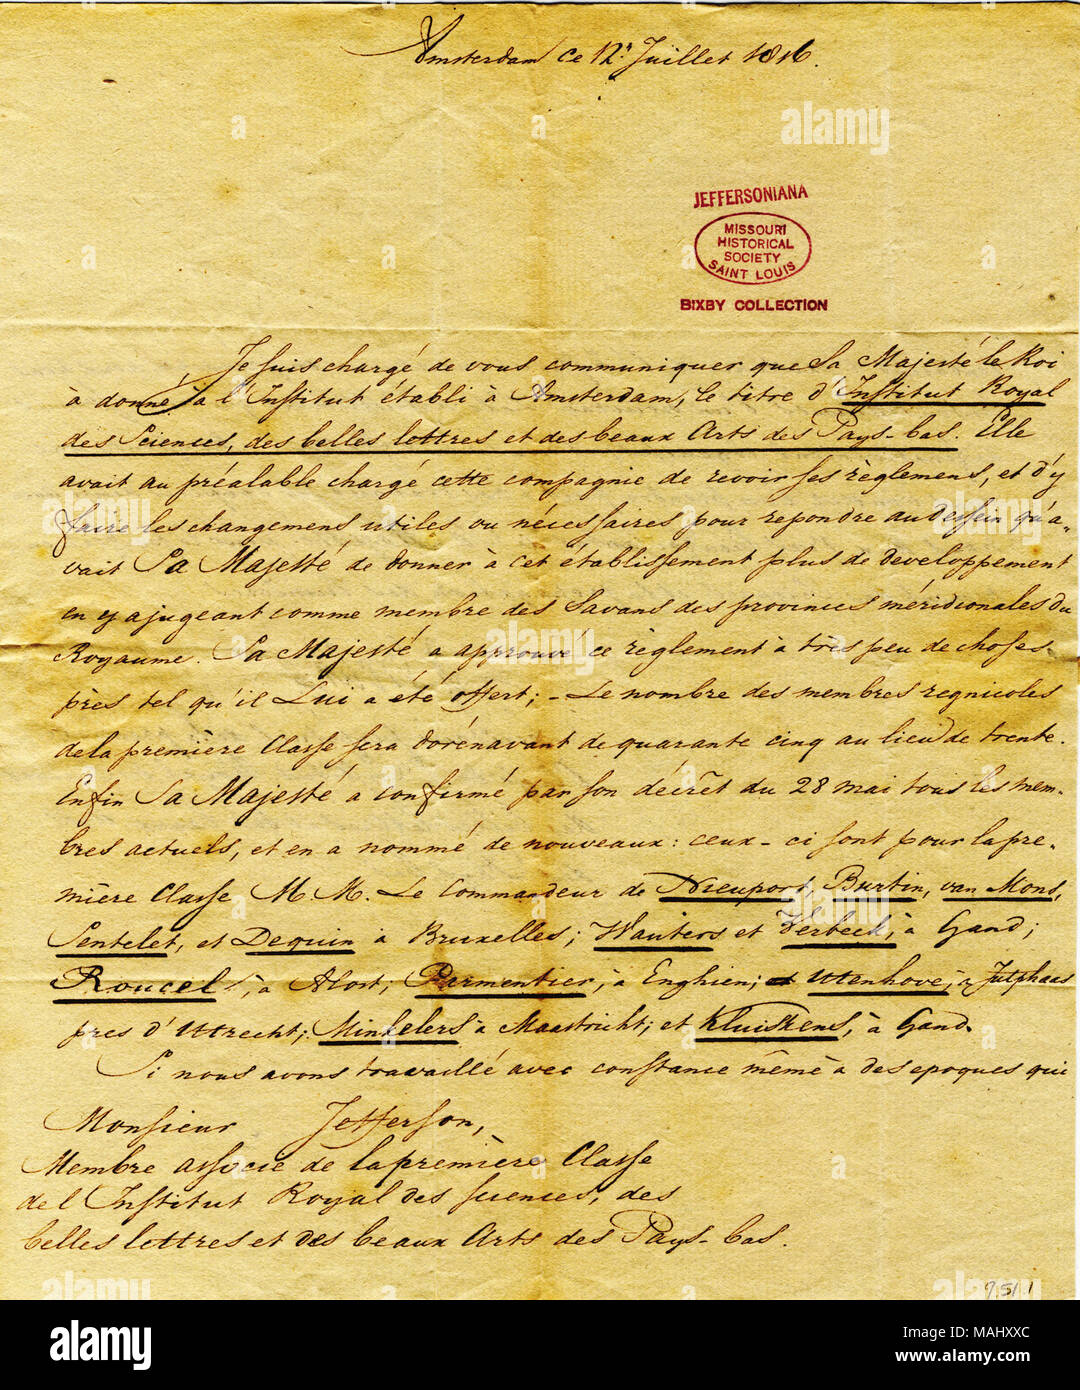 Amsterdam ce 12. Juillet 1816.
alamy
a a a
JEFFERSONIANA
MISSOURI
HISTORICAL
SOCIETY
SAINT LOUIS
BIXBY COLLECTION
Je suis chargé de vous communiquer que Sa Majesté le Roi
à donné, à l'Institut établi à Amsterdam, le titre d'Institut Royal
des Sciences, des belles lettres et des beaux Arts des Pays-bas. Elle
avait au préalable chargé cette compagnie de revoir ses règlemens, et d'y
faire les changemens utiles ou nécessaires pour repondre au dessein qu'a-
vait Sa Majesté de donner à cet établissement plus de developpement
en y ajugeant comme membre des Savans des provinces méridionales du
Royaume. Sa Majesté a approuvé ce règlement à très peu de choses
près tel qu'il Lui a été offert; - Le nombre des membres regnicoles
de la première Classe sera dorénavant de quarante cinq au lieu de trente.
Enfin Sa Majesté a confirmé par son décrêt du 28 mai tous les mem-
bres actuels, et en a nommé de nouveaux: ceux-ci sont pour la pre-
mière Classe M. M. Le Commandeur de Nieuport, Burtin, van Mons,
Sentelet, et Dequin à Bruxelles; Wauters et Verbeck, à Gand;
Roucel, à Alost; Parmentier, à Enghien; et Utenhove, à Jutphaas
pres d'Uttrecht; Minkelers à Maastricht; et Kluiskens, à Gand.
Si nous avons travaillé avec constance même à des epoques qui
Monsieur Jefferson,
Membre associe de la première Classe
de l'Institut Royal des sciences, des
belles lettres et des beaux Arts des Pays-bas.
951.1
alamy
Image ID: MAHXXC
www.alamy.com